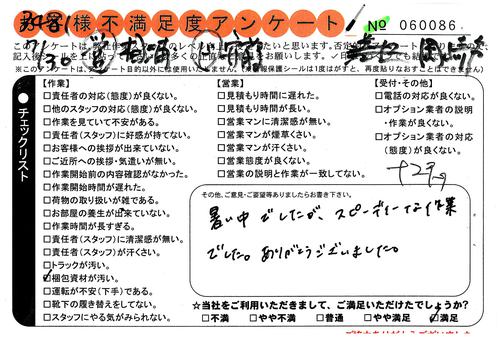 お客様不満足度アンケート
No 060086
7/30
※このアンケートは、アンケート目的以外に他使用いたしません。
チェックリスト
【作業】
□責任者の対応(態度)が良くない。
□他のスタッフの対応(態度)が良くない。
□作業を見ていて不安がある。
□責任者(スタッフ)に好感が持てない。
□お客様への挨拶が出来ていない。
□ご近所への挨拶・気遣いが無い。
□作業開始前の内容確認がなかった。
□作業開始時間が遅れた。
□荷物の取り扱いが雑である。
□お部屋の養生が出来ていない。
□作業時間が長すぎる。
□責任者(スタッフ)に清潔感が無い。
□責任者(スタッフ)が汗くさい。
□トラックが汚い。
□梱包資材が汚い。
□運転が不安(下手)である。
□靴下の履き替えをしてない。
□スタッフにやる気がみられない。
【営業】
□見積もり時間に遅れた。
□見積もり時間が長い。
□営業マンに清潔感が無い。
□営業マンが煙草くさい。
□営業マンが汗くさい。
□営業態度が良くない。
□営業の説明と作業が一致してない。
【受付・その他】
□電話の対応が良くない。
□オプション業者の説明・作業が良くない。
□オプション業者の対応(態度)が良くない。
その他、ご意見・ご要望等ありましたらお書き下さい。
暑い中でしたが、スピーディーな作業
でした。ありがとうございました。
☆当社をご利用いただきまして、ご満足いただけたでしょうか?
□不満 □やや不満 □普通 □やや満足 ☑満足